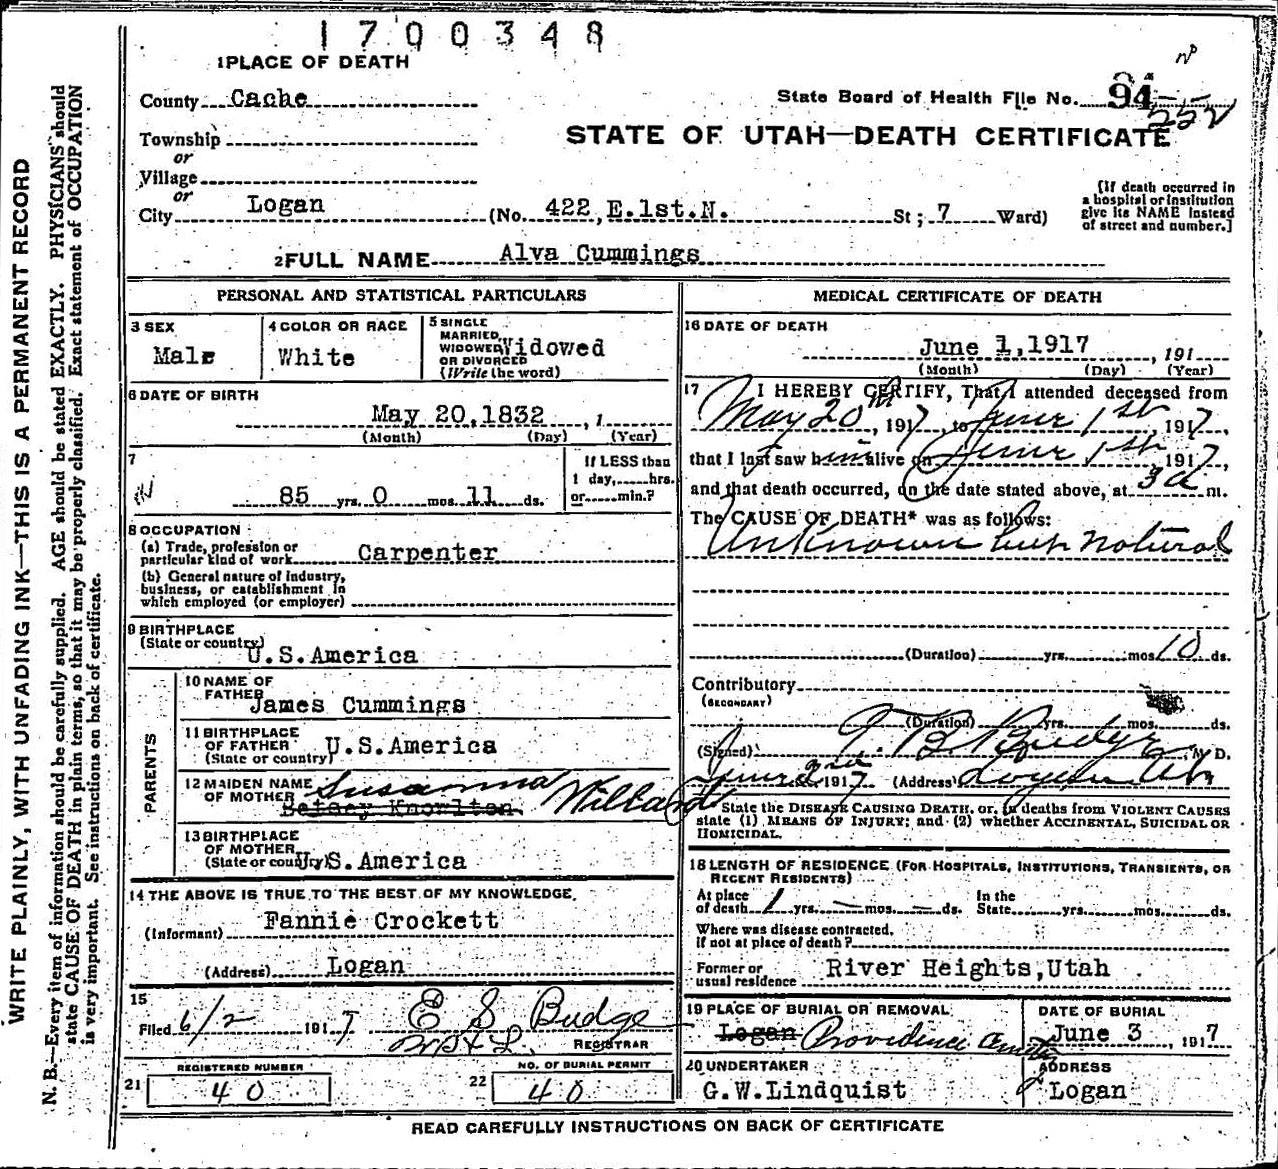 1700348
1 PLACE OF DEATH
County Cache
State Board of Health File No. 94
252
STATE OF UTAH—DEATH CERTIFICATE
Township
or
Village
or
City Logan (No. 422, E.1st.N. St; 7 Ward)
[If death occurred in
a hospital or institution
give its NAME instead
of street and number.]
2 FULL NAME Alva Cummings
PERSONAL AND STATISTICAL PARTICULARS
3 SEX
Male
4 COLOR OR RACE
White
5 SINGLE
MARRIED,
WIDOWED,
OR DIVORCED
(Write the word)
Widowed
6 DATE OF BIRTH
May 20,1832 , 1
(Month) (Day) (Year)
7
85 yrs. 0 mos. 11 ds.
If LESS than
1 day, hrs.
or min.?
8 OCCUPATION
(a) Trade, profession or
particular kind of work Carpenter
(b) General nature of industry,
business, or establishment in
which employed (or employer)
9 BIRTHPLACE
(State or country)
U.S.America
PARENTS
10 NAME OF
FATHER
James Cummings
11 BIRTHPLACE
OF FATHER
(State or country)
U.S.America
12 MAIDEN NAME
OF MOTHER
Susanna Willard
Betsey Knowlton
13 BIRTHPLACE
OF MOTHER
(State or country)
U.S.America
14 THE ABOVE IS TRUE TO THE BEST OF MY KNOWLEDGE.
(Informant) Fannie Crockett
(Address) Logan
15
Filed 6/2 1917 E S Budge
REGISTRAR
REGISTERED NUMBER
21 40
NO. OF BURIAL PERMIT
22 40
MEDICAL CERTIFICATE OF DEATH
16 DATE OF DEATH
June 1,1917 , 191
(Month) (Day) (Year)
17 I HEREBY CERTIFY, That I attended deceased from
May 20th, 1917, to June 1st, 1917,
that I last saw him alive on June 1st 1917,
and that death occurred, on the date stated above, at 3 a m.
The CAUSE OF DEATH* was as follows:
Unknown but natural
(Duration) yrs. mos. 10 ds.
Contributory
(SECONDARY)
(Duration) yrs. mos. ds.
(Signed) T. B. Budge, M. D.
June 2nd 1917 (Address) Logan Utah
State the DISEASE CAUSING DEATH, or, in deaths from VIOLENT CAUSES
state (1) MEANS OF INJURY; and (2) whether ACCIDENTAL, SUICIDAL OR
HOMICIDAL.
18 LENGTH OF RESIDENCE (FOR HOSPITALS, INSTITUTIONS, TRANSIENTS, OR
RECENT RESIDENTS)
At place
of death 1 yrs. — mos. — ds.
In the
State yrs. mos. ds.
Where was disease contracted,
if not at place of death?
Former or
usual residence River Heights,Utah
19 PLACE OF BURIAL OR REMOVAL
Logan Providence
DATE OF BURIAL
June 3 , 1917
20 UNDERTAKER
G.W.Lindquist
ADDRESS
Logan
READ CAREFULLY INSTRUCTIONS ON BACK OF CERTIFICATE
WRITE PLAINLY, WITH UNFADING INK—THIS IS A PERMANENT RECORD
N. B.—Every item of information should be carefully supplied. AGE should be stated EXACTLY. PHYSICIANS should
state CAUSE OF DEATH in plain terms, so that it may be properly classified. Exact statement of OCCUPATION
is very important. See instructions on back of certificate.